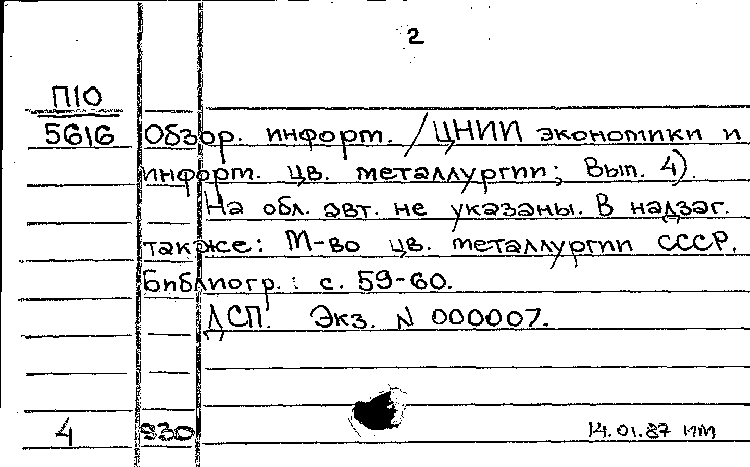 2
П10
5616 Обзор. информ. /ЦНИИ экономики и
информ. цв. металлургии; Вып. 4).
На обл. авт. не указаны. В надзаг.
также: М-во цв. металлургии СССР.
Библиогр.: с. 59-60.
ДСП. Экз. N 000007.
4 930 14.01.87 ИМ